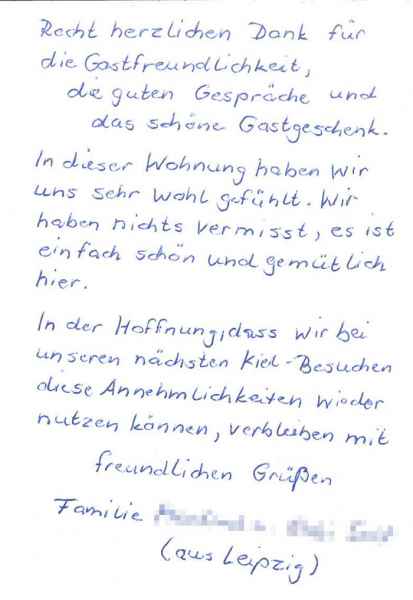 Recht herzlichen Dank für
die Gastfreundlichkeit,
die guten Gespräche und
das schöne Gastgeschenk.
In dieser Wohnung haben wir
uns sehr wohl gefühlt. Wir
haben nichts vermisst, es ist
einfach schön und gemütlich
hier.
In der Hoffnung, dass wir bei
unseren nächsten Kiel-Besuchen
diese Annehmlichkeiten wieder
nutzen können, verbleiben mit
freundlichen Grüßen
Familie
(aus Leipzig)